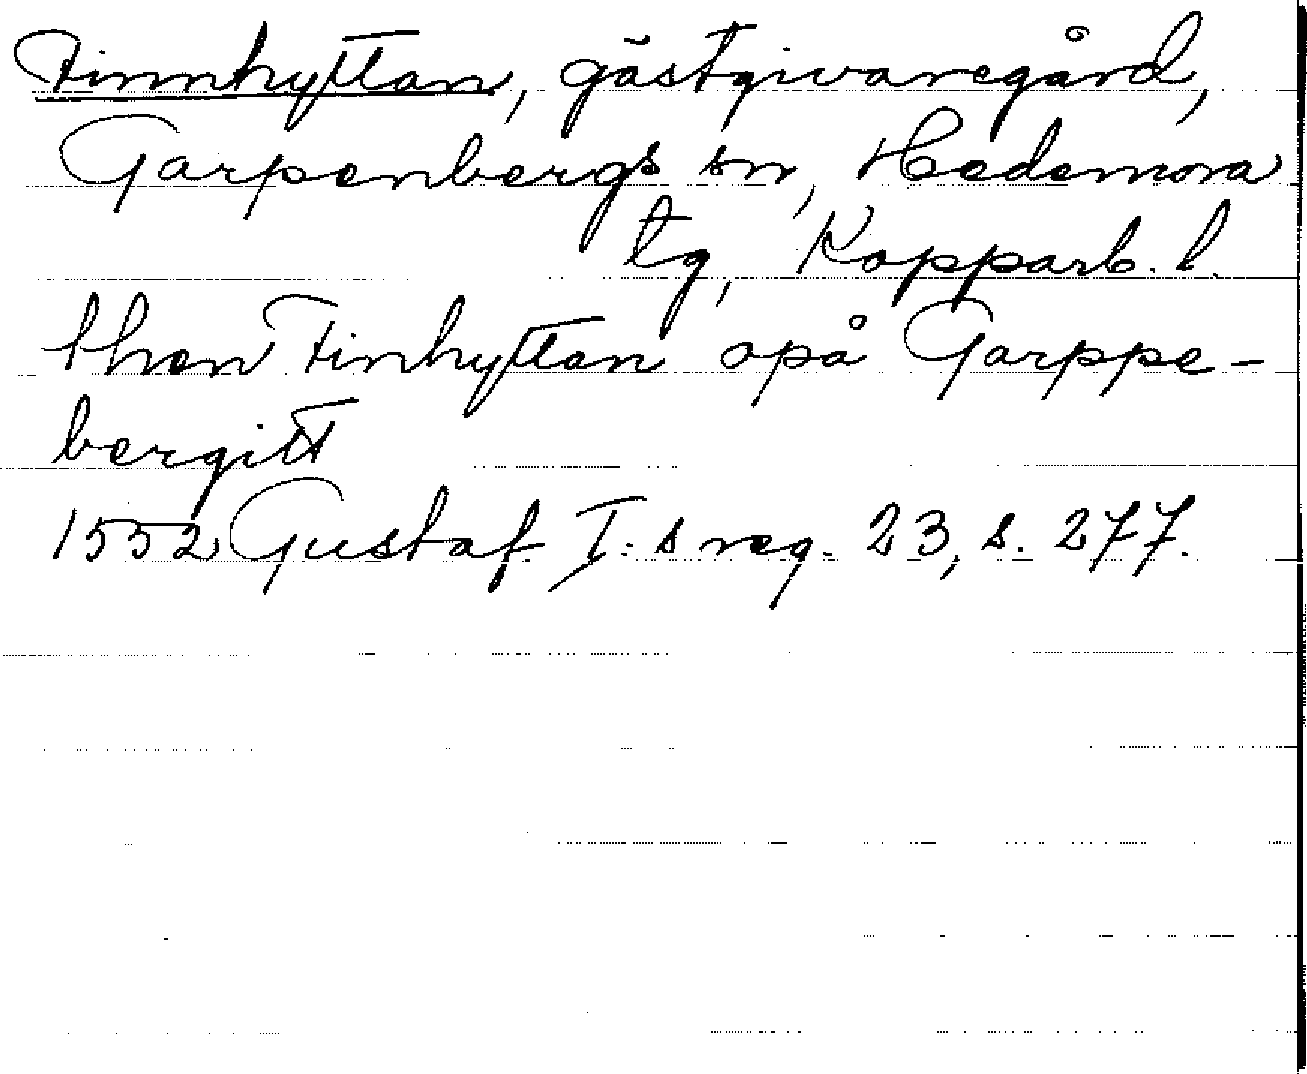 Finnhyttan, gästgivaregård,
Garpenbergs sn, Hedemora
tg, Kopparb. l.
then Finhyttan opå Garppe-
bergitt
1552 Gustaf I:s reg. 23, s. 277.